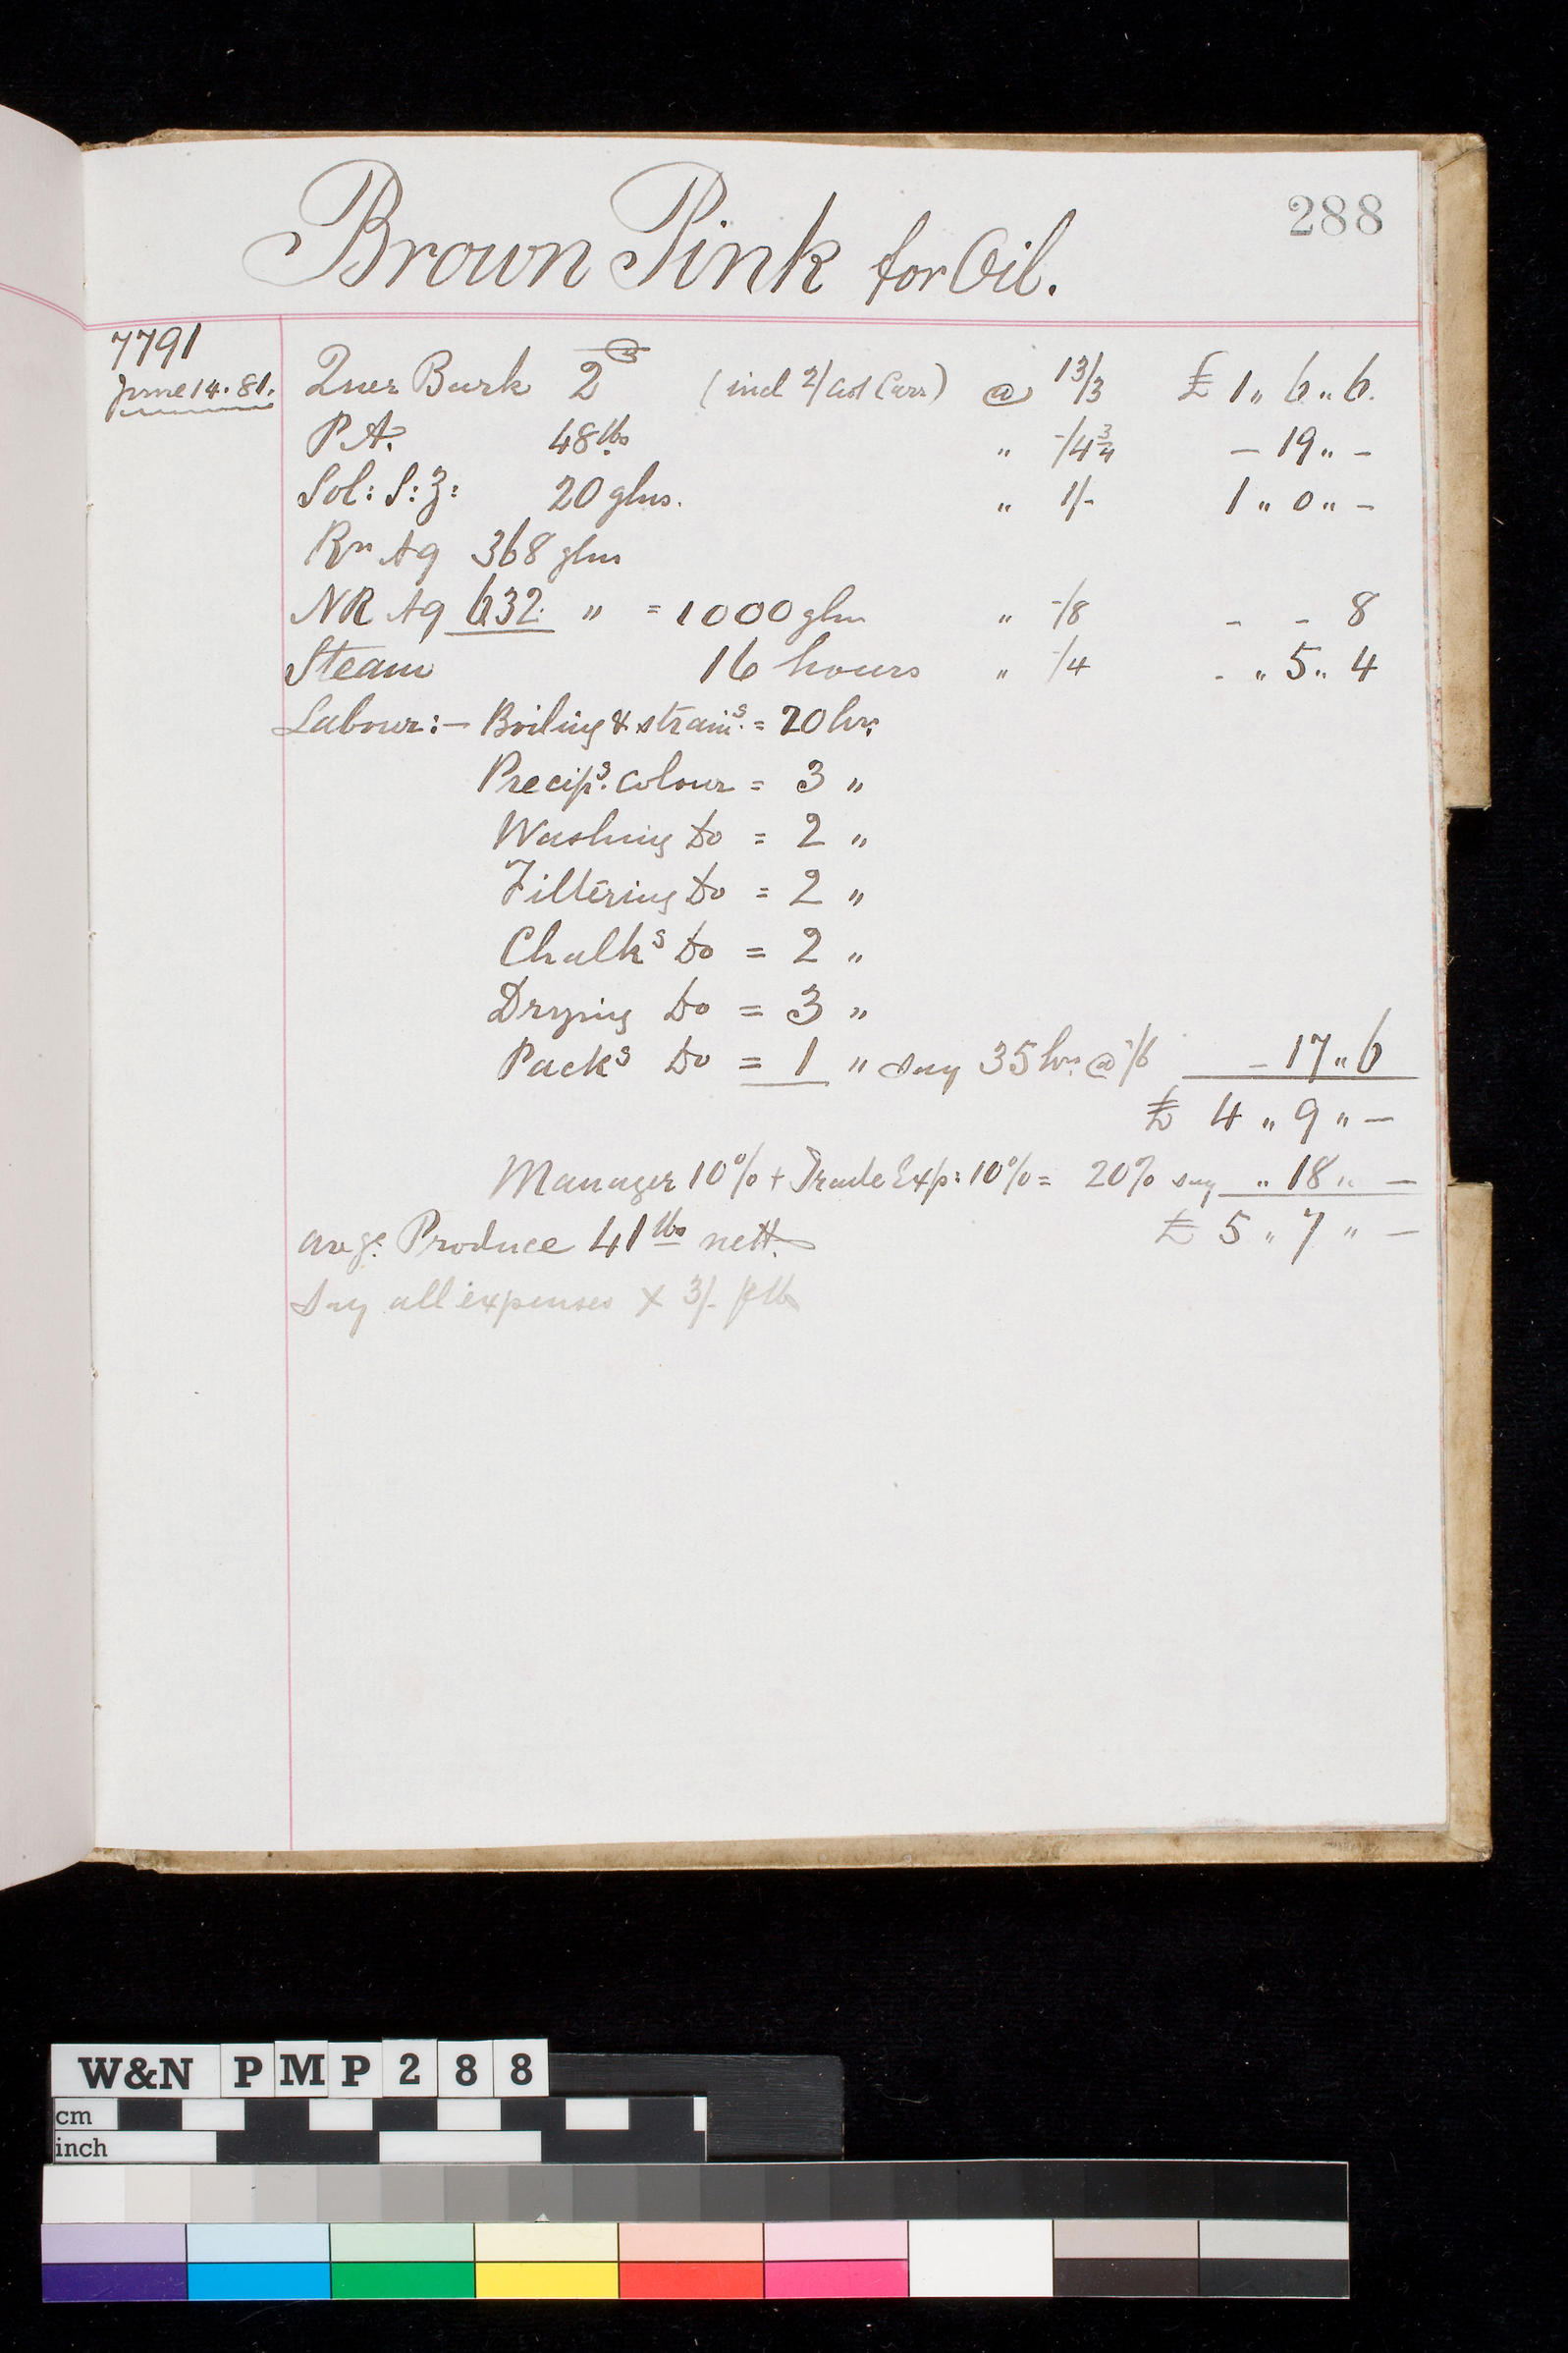 288
Brown Pink for Oil.
7791
June 14. 81.
Quer Bark 2 (incl 2/ Carr) @ 13/3 £ 1 „ 6 „ 6.
P A. 48 lbs „ -/4¾ – 19 „ –
Sol: S: Z: 20 glns. „ 1/- 1 „ 0 „ –
Rn Aq 368 glns
NR Aq 632 „ = 1000 glns „ -/8 - - 8
Steam 16 hours „ -/4 - „ 5 „ 4
Labour:– Boiling & strains. = 20 hrs
Precips. colour = 3 „
Washing Do = 2 „
Filtering Do = 2 „
Chalks Do = 2 „
Drying Do = 3 „
Packs Do = 1 „ say 35 hrs @ -/6 – 17 „ 6
£ 4 „ 9 „ –
Manager 10% + Trade Exp: 10% = 20% say „ 18 „ –
avge. Produce 41 lbs nett. £ 5 „ 7 „ –
Say all expenses x 3/- p lb
W&N PMP288
cm
inch